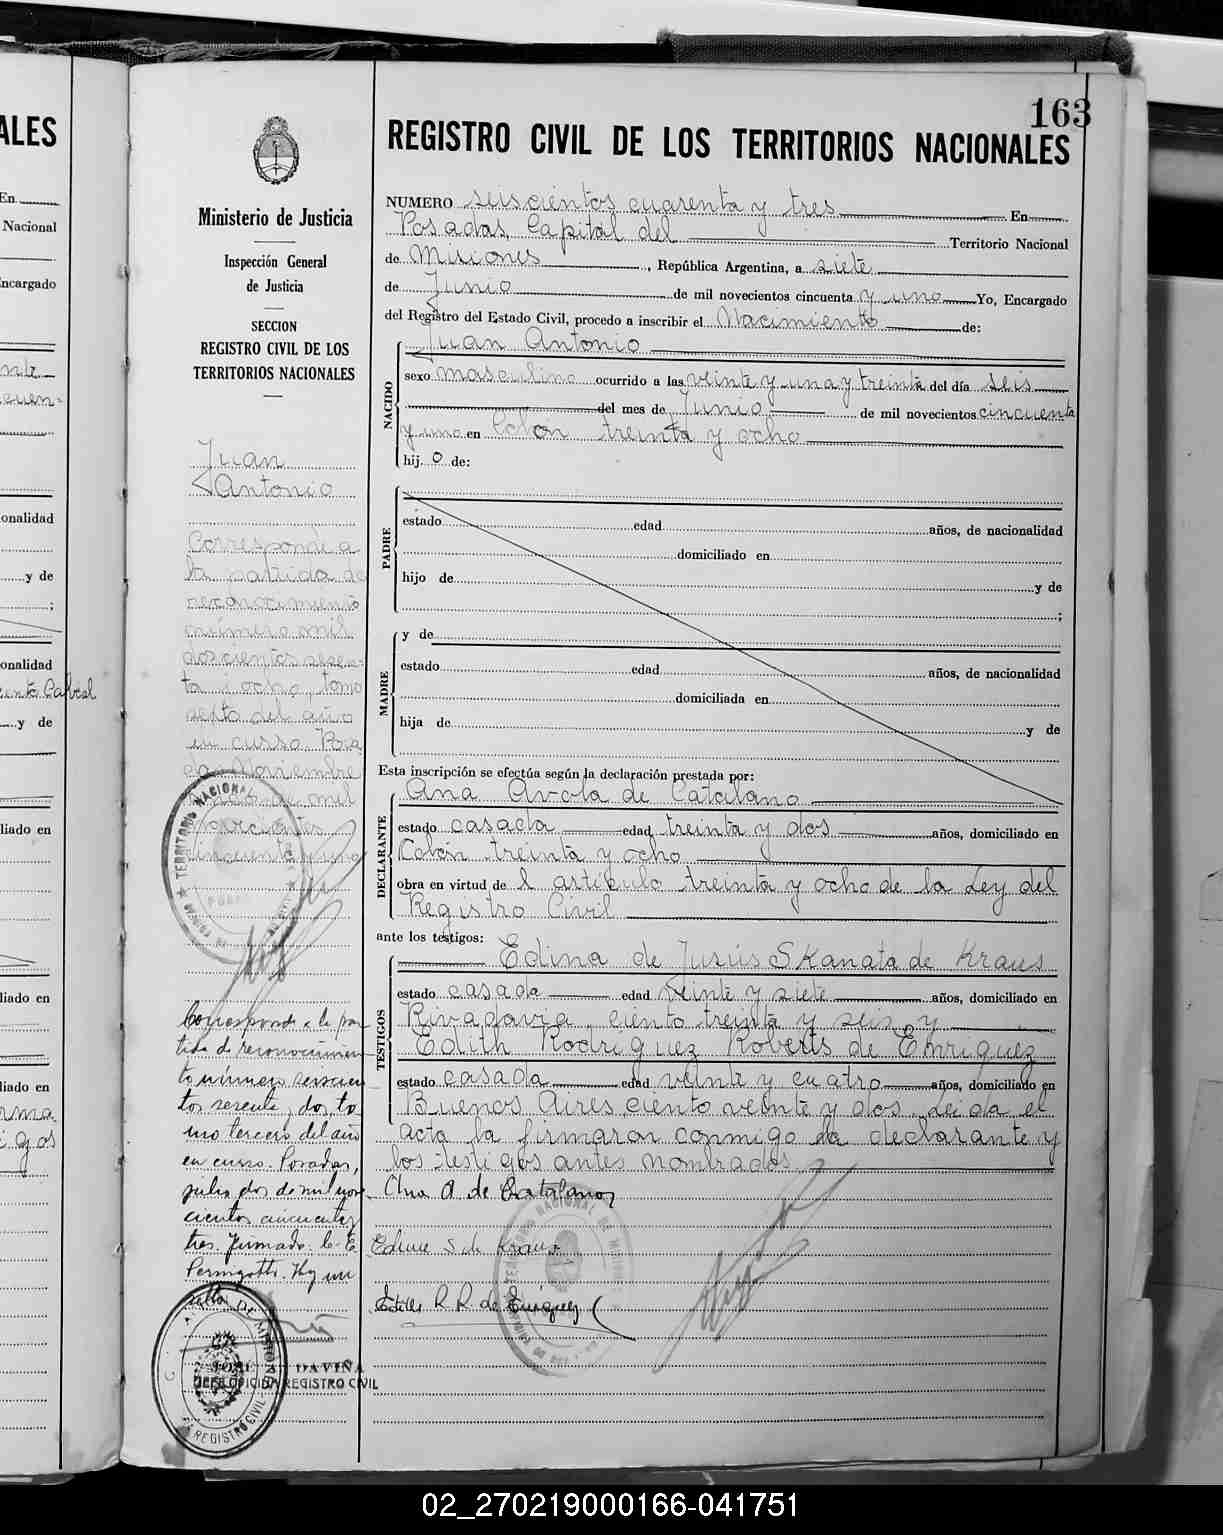 163
REGISTRO CIVIL DE LOS TERRITORIOS NACIONALES
NUMERO seiscientos cuarenta y tres En
Posadas, Capital del Territorio Nacional
de Misiones, República Argentina, a siete
de Junio de mil novecientos cincuenta y uno Yo, Encargado
del Registro del Estado Civil, procedo a inscribir el Nacimiento de:
Juan Antonio
NACIDO
sexo masculino ocurrido a las veinte y una y treinta del día seis
del mes de Junio de mil novecientos cincuenta
y uno en Colón treinta y ocho
hij o de:
PADRE
estado edad años, de nacionalidad
domiciliado en
hijo de y de
;
MADRE
y de
estado edad años, de nacionalidad
domiciliada en
hija de y de
Esta inscripción se efectúa según la declaración prestada por:
DECLARANTE
Ana Avola de Catalano
estado casada edad treinta y dos años, domiciliado en
Colón treinta y ocho
obra en virtud de l artículo treinta y ocho de la Ley del
Registro Civil
ante los testigos:
TESTIGOS
Edina de Jusús Skanata de Kraus
estado casada edad veinte y siete años, domiciliado en
Rivadavia ciento treinta y seis, y
Edith Rodriguez Roberts de Enriquez
estado casada edad veinte y cuatro años, domiciliado en
Buenos Aires ciento veinte y dos. Leida el
acta la firmaron conmigo la declarante y
los testigos antes nombrados.
Ana A. de Catalano
S. de Kraus
R. R. de Enriquez
Ministerio de Justicia
Inspección General
de Justicia
SECCION
REGISTRO CIVIL DE LOS
TERRITORIOS NACIONALES
Juan
Antonio
Corresponde a
la partida de
reconocimiento
número mil
doscientos
ta i ocho, tomo
sexto del año
en curso. Posa
das Noviembre
de mil
novecientos
cincuenta y uno
Corresponde a la par
tida de reconocimien
to número seiscien
tos sesenta y dos, to
mo tercero del año
en curso. Posadas,
julio dos de mil nove
cientos cincuenta y
tres. Firmado: C. E.
Perrigotti. Hay un
sello
DAVIÑA
REGISTRO CIVIL
ALES
En
Nacional
ncargado
onalidad
y de
;
onalidad
y de
liado en
liado en
liado en
02_270219000166-041751